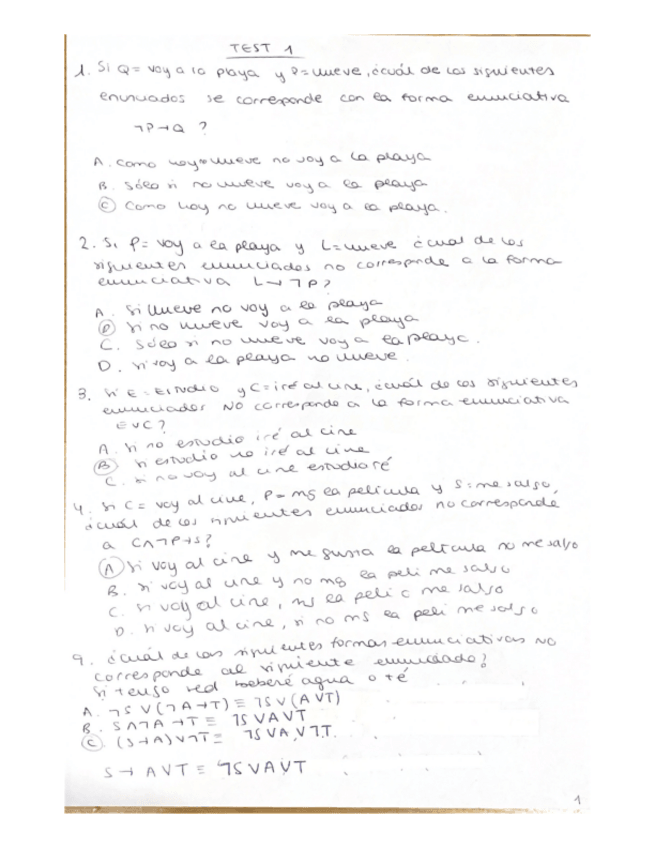 TEST 1
1. Si Q = voy a la playa y P = llueve, ¿cuál de los siguientes
enunciados se corresponde con la forma enunciativa
¬P→Q ?
A. Como hoy llueve no voy a la playa
B. Sólo si no llueve voy a la playa
C. Como hoy no llueve voy a la playa.
2. Si P = voy a la playa y L = llueve ¿cual de los
siguientes enunciados no corresponde a la forma
enunciativa L→¬P?
A. Si llueve no voy a la playa
B. Si no llueve voy a la playa
C. Sólo si no llueve voy a la playa.
D. Si voy a la playa no llueve.
3. Si E = Estudio y C = iré al cine, ¿cuál de los siguientes
enunciados NO corresponde a la forma enunciativa
EVC?
A. Si no estudio iré al cine
B. Si estudio no iré al cine
C. Si no voy al cine estudiaré
4. Si C = voy al cine, P = mg la película y S = me salgo,
¿cuál de los siguientes enunciados no corresponde
a C∧¬P→S?
A. Si voy al cine y me gusta la película no me salgo
B. Si voy al cine y no mg la peli me salgo
C. Si voy al cine, mg la peli o me salgo
D. Si voy al cine, si no mg la peli me salgo
9. ¿Cuál de las siguientes formas enunciativas NO
corresponde al siguiente enunciado?
Si tengo sed beberé agua o té
A. ¬S V (¬A→T) ≡ ¬S V (A V T)
B. S∧¬A→T ≡ ¬S V A V T
C. (S→A) V ¬T ≡ ¬S V A V ¬T.
S→ A V T ≡ ¬S V A V T
1